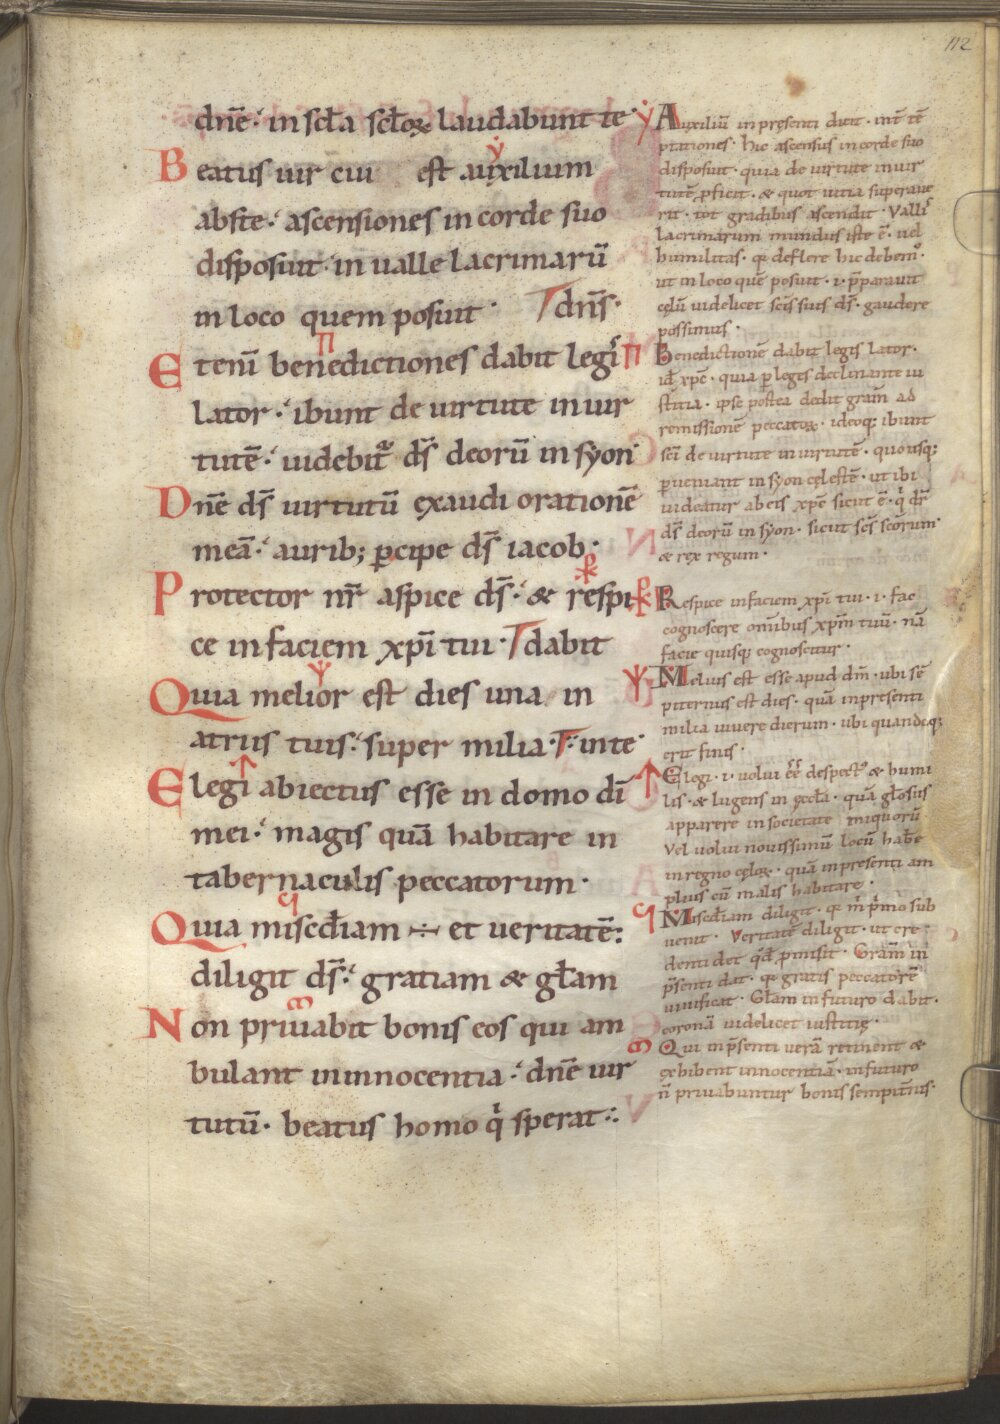 112
dnē· in sc̄la sc̄loꝝ laudabunt te·
Beatus uir cui est auxilium
abste· ascensiones in corde suo
disposuit· in ualle lacrimarū
in loco quem posuit· dn̄s·
Etenī benedictiones dabit legis
lator· ibunt de uirtute in uir
tutē· uidebit̄ ds̄ deorū in syon
Dnē ds̄ uirtutū ęxaudi orationē
meā· aurib; ꝑcipe ds̄ iacob·
Protector nr̄ aspice ds̄· & respi
ce in faciem xp̄i tui· dabit
Quia melior est dies una in
atriis tuis· super milia· inte·
Elegi abiectus esse in domo dī
mei· magis quā habitare in
tabernaculis peccatorum·
Quia misc̄diam ÷ et ueritatē:
diligit ds̄· gratiam & gl̄am
Non priuabit bonis eos qui am
bulant in innocentia· dnē uir
tutū· beatus homo q̇ sperat·
Auxiliū in pręsenti dicit· int̄ tē
ptationes· hic ascensus in corde suo
disposuit· quia de uirtute in uir
tutē ꝓficit· & quot uitia superaue
rit· tot gradibus ascendit· Vallis
lacrimarum mundus iste ē· uel
humilitas· qꝫ deflere hic debem᾿·
ut in loco quē posuit· i· p̄parauit
cęlū uidelicet sc̄is suis ds̄· gaudere
possimus·
Benedictionē dabit legis lator·
id xp̄c· quia ꝑ legis declinante iu
stitia· ipse postea dedit gr̄am ad
remissionē peccatoꝝ· ideoq; ibunt
sc̄i de uirtute in uirtutē· quousq;
ꝑueniant in syon cęlestē· ut ibi
uideatur ab eis xp̄c sicut ē· q̇ dr̄
ds̄ deorū in syon· sicut sc̄s sc̄orum
& rex regum·
Respice in faciem xp̄i tui· i· fac
cognoscere omnibus xp̄m tuū· nā
facie quisq; cognoscitur·
Melius est esse apud dm̄· ubi sē
piternus est dies· quā in presenti
milia uiuere dierum· ubi quandoq;
erit finis·
Elegi· i· uolui ēē despect᾿ & humi
lis· & lugens in ęccl̄a· quā gl̄osus
apparere in societate iniquorū
Vel uolui nouissimū locū habē
in regno cęloꝝ· quā in presenti am
plius cū malis habitare·
Misc̄diam diligit· qꝫ m̄ p̄mo sub
uenit· Veritatē diligit· ut cre
denti det qd̄ ꝓmisit· Gr̄am in
p̄senti dat· qꝫ gratis peccatorē
iuuificat· Gl̄am in futuro dabit·
coronā uidelicet iustitię·
Qui in p̄senti uerā retinent &
ęxhibent innocentiā· in futuro
n̄ priuabuntur bonis sempit̄nis·